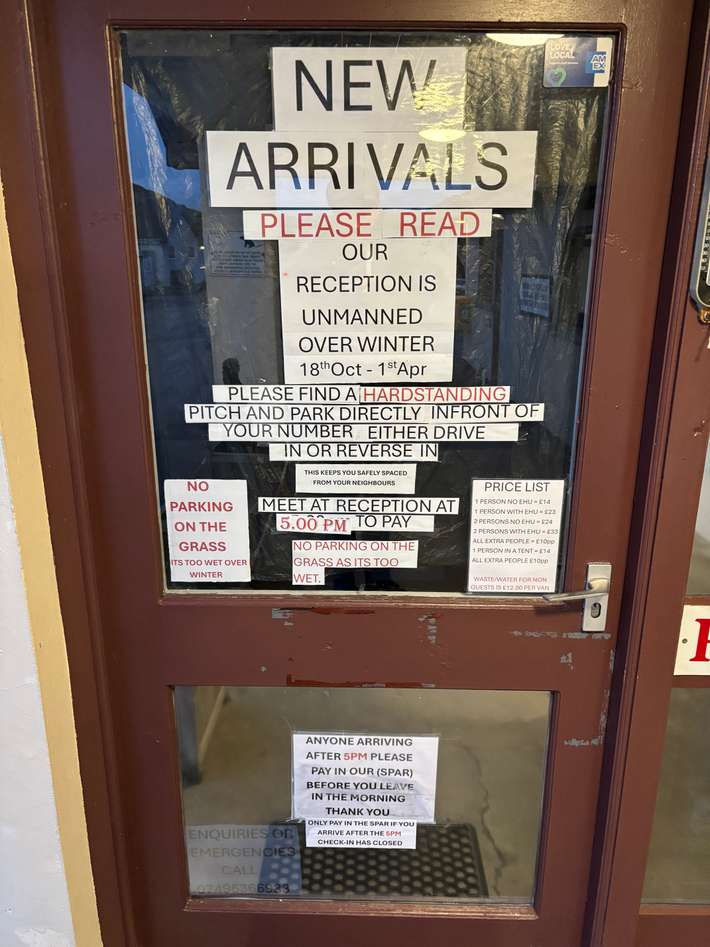 LOVE
LOCAL
AM
EX
NEW
ARRIVALS
PLEASE READ
OUR
RECEPTION IS
UNMANNED
OVER WINTER
18thOct - 1stApr
PLEASE FIND A HARDSTANDING
PITCH AND PARK DIRECTLY INFRONT OF
YOUR NUMBER EITHER DRIVE
IN OR REVERSE IN
THIS KEEPS YOU SAFELY SPACED
FROM YOUR NEIGHBOURS
MEET AT RECEPTION AT
5.00 PM TO PAY
NO PARKING ON THE
GRASS AS ITS TOO
WET.
NO
PARKING
ON THE
GRASS
ITS TOO WET OVER
WINTER
PRICE LIST
1 PERSON NO EHU = £14
1 PERSON WITH EHU = £23
2 PERSONS NO EHU = £24
2 PERSONS WITH EHU = £33
ALL EXTRA PEOPLE = £10pp
1 PERSON IN A TENT = £14
ALL EXTRA PEOPLE £10pp
WASTE/WATER FOR NON
GUESTS IS £12.50 PER VAN
ANYONE ARRIVING
AFTER 5PM PLEASE
PAY IN OUR (SPAR)
BEFORE YOU LEAVE
IN THE MORNING
THANK YOU
ONLY PAY IN THE SPAR IF YOU
ARRIVE AFTER THE 5PM
CHECK-IN HAS CLOSED
ENQUIRIES OR
EMERGENCIES
CALL